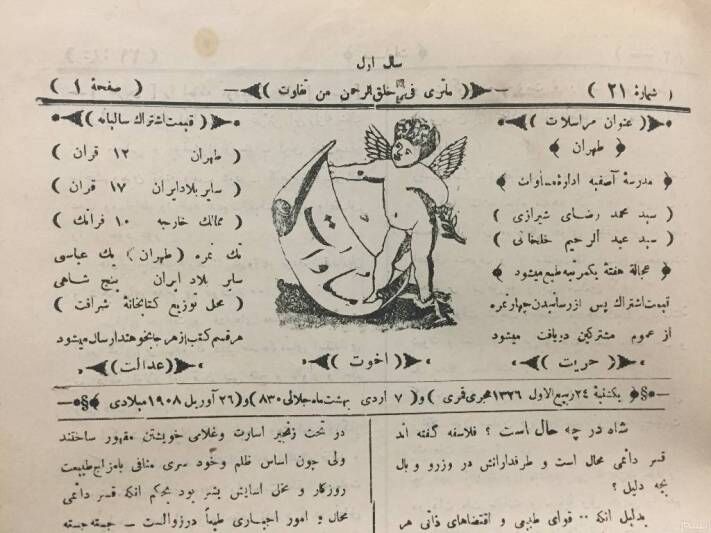 سال اول
( شمارهٔ ۲۱ )
( ماتری فی خلق الرحمن من تفاوت )
( صفحهٔ ۱ )
( عنوان مراسلات )
( طهران )
مدرسهٔ آصفیه ادارهٔ مساوات
( سید محمد رضای شیرازی )
( سید عبد الرحیم خلخالی )
عجالة هفتهٔ یکمرتبه طبع میشود
قیمت اشتراک پس از رسانیدن چهار نمره
از عموم مشترکین دریافت میشود
( حریت )
مساوات
( اخوت )
( قیمت اشتراک سالیانه )
( طهران ۱۲ قران )
( سایر بلاد ایران ۱۷ قران )
( ممالک خارجه ۱۰ فرانک )
تک نمره ( طهران ) یک عباسی
سایر بلاد ایران پنج شاهی
( محل توزیع کتابخانهٔ شرافت )
هر قسم کتب از هر جا بخواهند ارسال میشود
( عدالت )
یکشنبهٔ ۲۴ ربیع الاول ۱۳۲۶ هجری قمری ) و ( ۷ اردی بهشت ماه جلالی ۸۳۰ ) و ( ۲۶ آوریل ۱۹۰۸ میلادی
شاه در چه حال است ؟ فلاسفه گفته اند
قسر دائمی محال است و طرفدارانش در وزر و وبال
بچه دلیل ؟
بدلیل آنکه ‥ قوای طبیعی و اقتضاهای ذاتی هر
در تحت زنجیر اسارت و غلامی خویشتن مقهور ساختند
ولی چون اساس ظلم و خود سری منافی با مزاج طبیعت
روزگار و مخل آسایش بشر بود بحکم آنکه قسر دائمی
محال و امور اجباری طبعاً در زوالست — جسته جسته